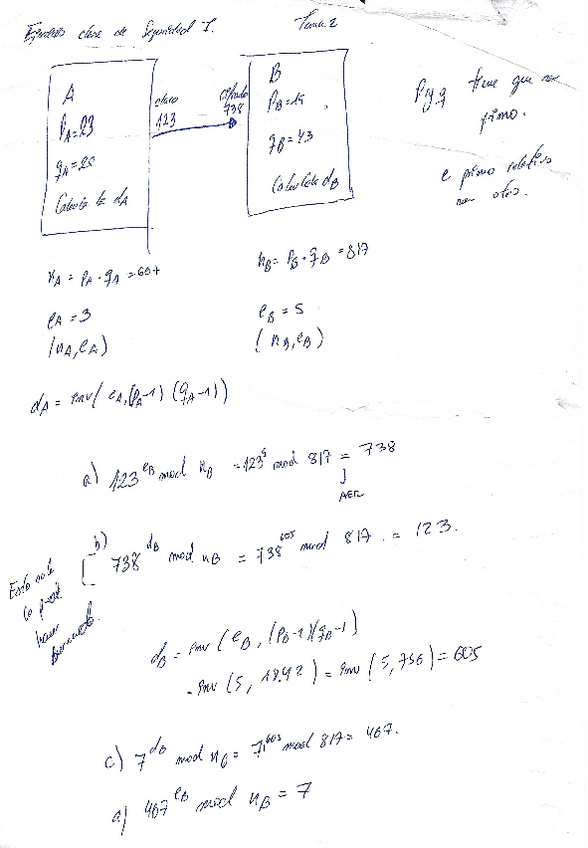 Ejercicios clase de Seguridad I. Tema 2
A
P_A=23
q_A=29
Calcula la d_A
claro
123
Cifrado
738
B
P_B=19
q_B=43
Calcula la d_B
P y q tiene que ser
primo.
e primo relativo
con otros.
n_A = P_A · q_A = 667
e_A = 3
(n_A, e_A)
n_B = P_B · q_B = 817
e_B = 5
(n_B, e_B)
d_A = inv(e_A, (P_A-1) (q_A-1))
a) 123^e_B mod n_B = 123^5 mod 817 = 738
↓
AER
b) 738^d_B mod n_B = 738^605 mod 817 = 123.
Esto no se
lo puede
hacer
d_B = inv(e_B, (P_B-1)(q_B-1))
= inv(5, 18·42) = inv(5, 756) = 605
c) 7^d_B mod n_B = 7^605 mod 817 = 467.
a) 467^e_B mod n_B = 7